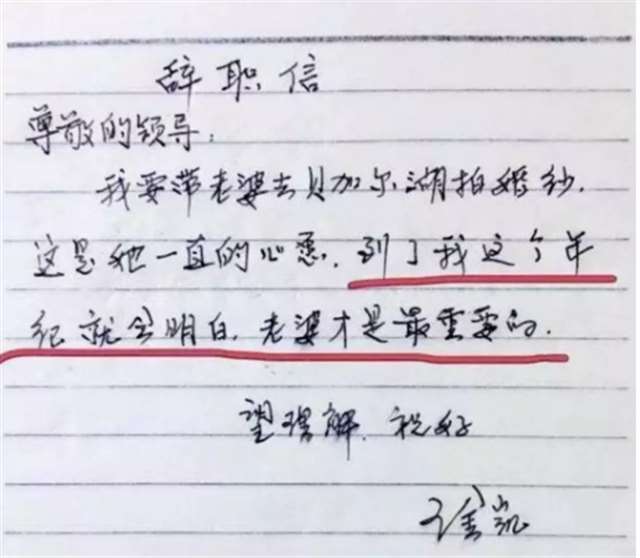 辞职信
尊敬的领导：
我要带老婆去贝加尔湖拍婚纱，
这是她一直的心愿，到了我这个年
纪就会明白，老婆才是最重要的。
望理解，祝好
徐凯